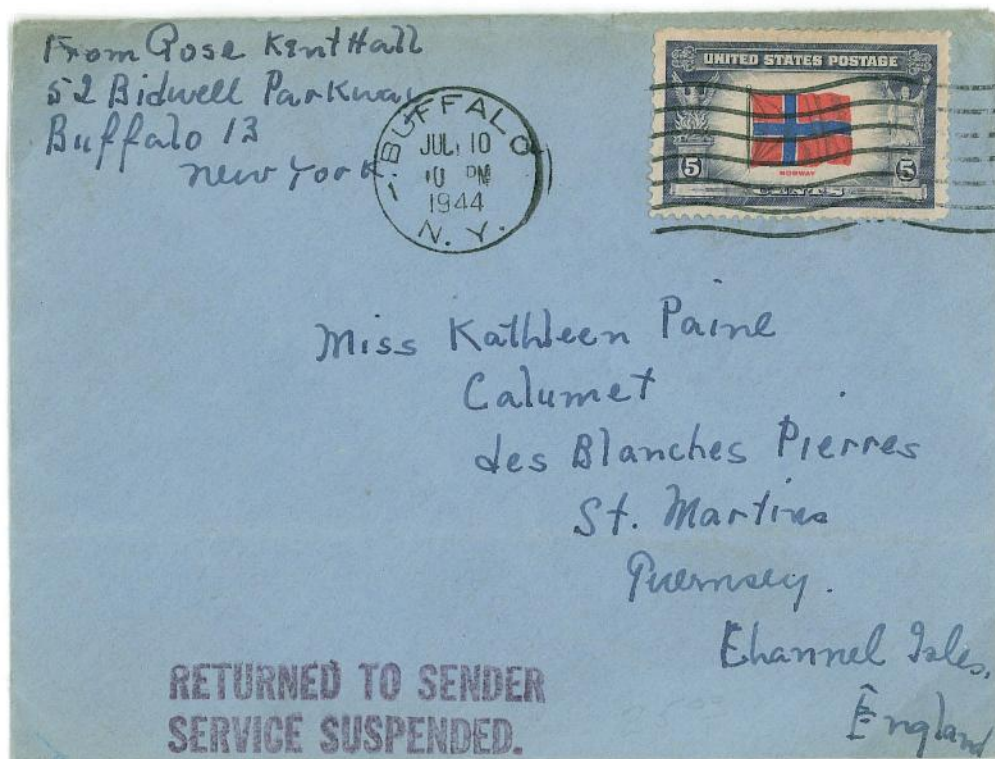 From Rose Kent Hall
52 Bidwell Parkway
Buffalo 13
New York
BUFFALO
JUL 10
10 PM
1944
N. Y.
UNITED STATES POSTAGE
NORWAY
5 CENTS 5
Miss Kathleen Paine
Calumet
des Blanches Pierres
St. Martins
Guernsey.
Channel Isles,
England
RETURNED TO SENDER
SERVICE SUSPENDED.